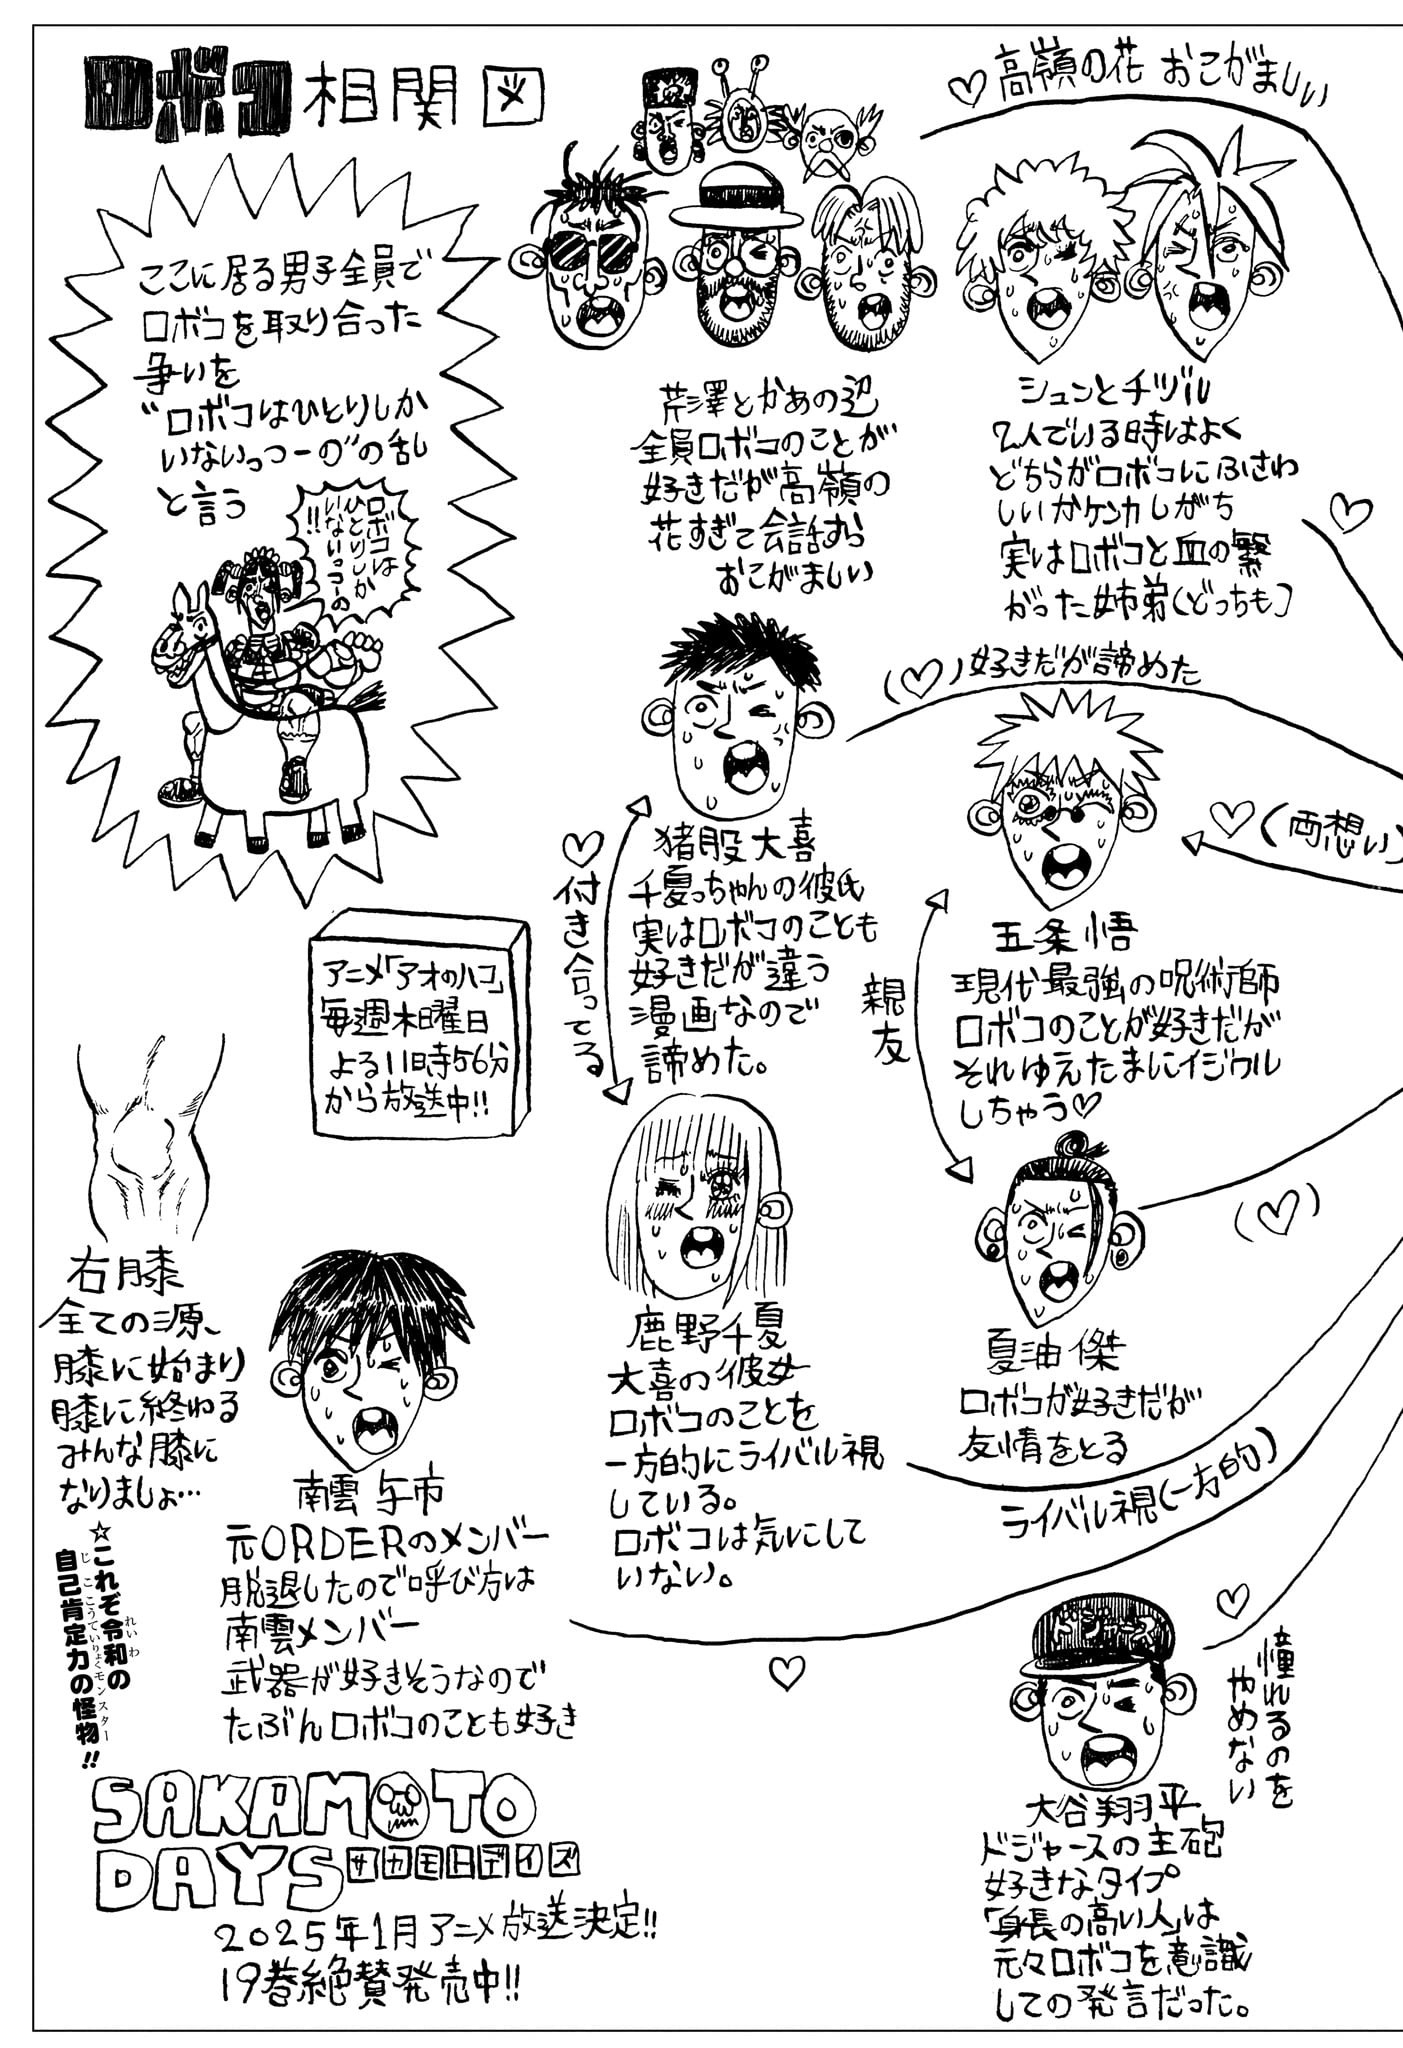 ロボコ相関図
♡高嶺の花 おこがましい
ここに居る男子全員で
ロボコを取り合った
争いを
“ロボコはひとりしか
いないっつーの”の乱
と言う
ロボコは
ひとりしか
いないっつーの
!!
芹澤とかあの辺
全員ロボコのことが
好きだが高嶺の
花すぎて会話すら
おこがましい
シュンとチヅル
2人でいる時はよく
どちらがロボコにふさわ
しいかケンカしがち
実はロボコと血の繋
がった姉弟(どっちも)
♡
(♡)好きだが諦めた
♡(両想い)
猪股大喜
千夏っちゃんの彼氏
実はロボコのことも
好きだが違う
漫画なので
諦めた。
♡付き合ってる
五条悟
現代最強の呪術師
ロボコのことが好きだが
それゆえたまにイジワル
しちゃう♡
親友
アニメ「アオのハコ」
毎週木曜日
よる11時56分
から放送中!!
(♡)
右膝
全ての源、
膝に始まり
膝に終わる
みんな膝に
なりましょ…
☆これぞ令和の
自己肯定力の怪物!!
れいわ
じここうていりょくモンスター
南雲与市
元ORDERのメンバー
脱退したので呼び方は
南雲メンバー
武器が好きそうなので
たぶんロボコのことも好き
鹿野千夏
大喜の彼女
ロボコのことを
一方的にライバル視
している。
ロボコは気にして
いない。
夏油傑
ロボコが好きだが
友情をとる
ライバル視(一方的)
♡
♡
憧れるのを
やめない
ドジャース
大谷翔平
ドジャースの主砲
好きなタイプ
「身長の高い人」は
元々ロボコを意識
しての発言だった。
SAKAMOTO
DAYS サカモトデイズ
2025年1月アニメ放送決定!!
19巻絶賛発売中!!